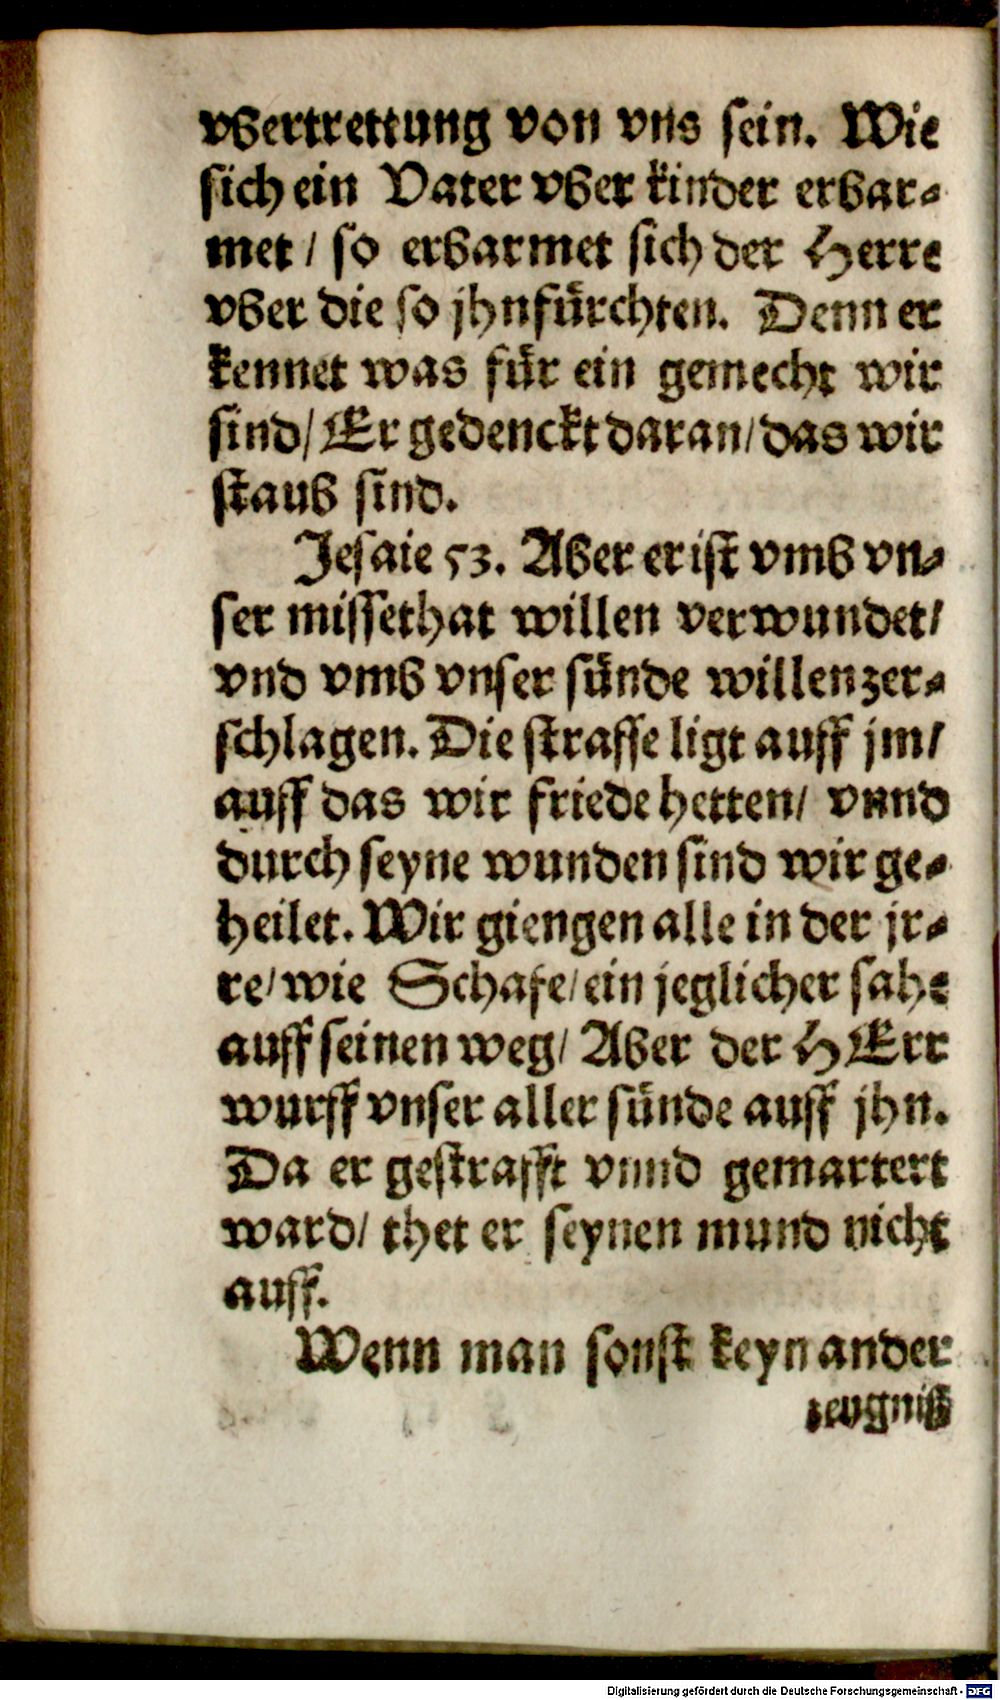 vbertrettung von vns sein. Wie
sich ein Vater vber kinder erbar-
met / so erbarmet sich der Herre
vber die so jhn fürchten. Denn er
kennet was für ein gemecht wir
sind / Er gedenckt daran / das wir
staub sind.
Jesaie 53. Aber er ist vmb vn-
ser missethat willen verwundet /
vnd vmb vnser sünde willen zer-
schlagen. Die straffe ligt auff jm /
auff das wir friede hetten / vnnd
durch seyne wunden sind wir ge-
heilet. Wir giengen alle in der jr-
re / wie Schafe / ein jeglicher sahe
auff seinen weg / Aber der HErr
wurff vnser aller sünde auff jhn.
Da er gestrafft vnnd gemartert
ward / thet er seynen mund nicht
auff.
Wenn man sonst keyn ander
zeugniß
Digitalisierung gefördert durch die Deutsche Forschungsgemeinschaft - DFG